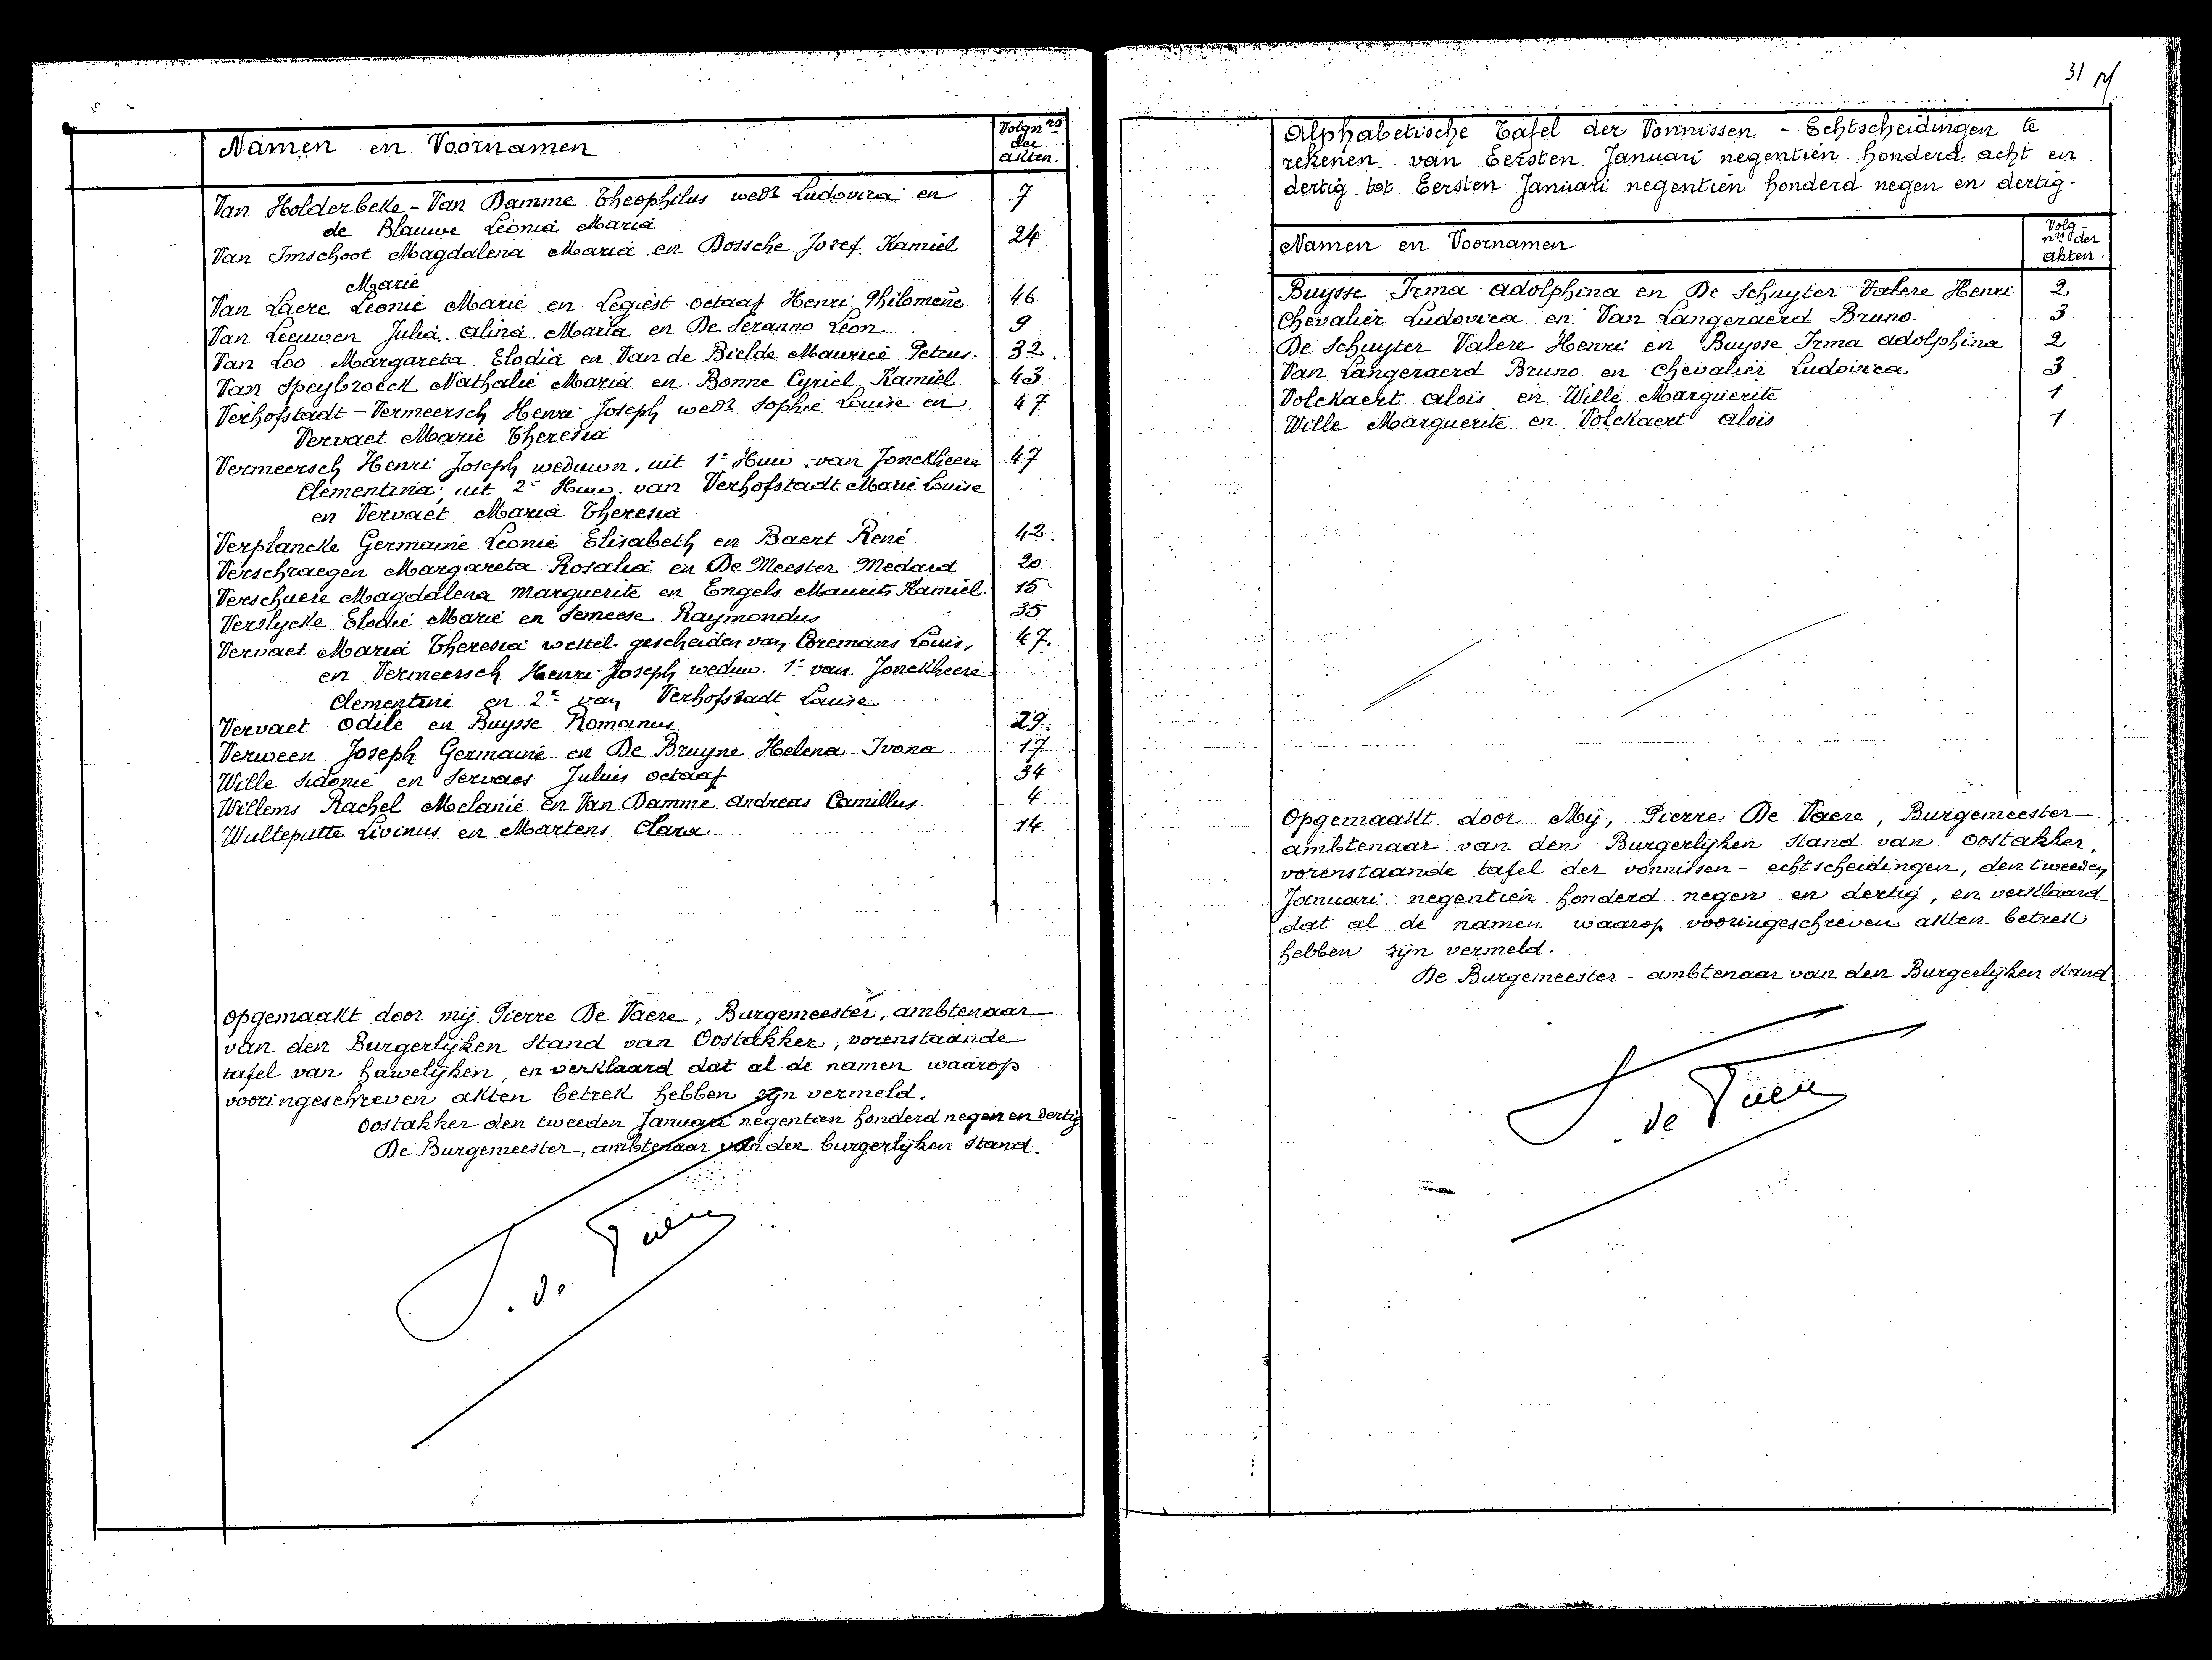 Namen en Voornamen
Volgnrs
der
akten.
Van Holderbeke - Van Damme Theophilus wedr Ludovica en 7
de Blauwe Leonia Maria
Van Imschoot Magdalena Maria en Dossche Jozef Kamiel 24
Marie
Van Laere Leonie Marie en Legiest Octaaf Henri Philomene 46
Van Leeuwen Julia Alina Maria en De Seranno Leon 9
Van Loo Margareta Elodia en Van de Bielde Maurice Petrus. 32.
Van Speybroeck Nathalie Maria en Bonne Cyriel Kamiel 43
Verhofstadt - Vermeersch Henri Joseph wedr Sophie Louise en 47
Vervaet Marie Theresia
Vermeersch Henri Joseph weduwn. uit 1e Huw. van Jonckheere 47
Clementina; uit 2e Huw. van Verhofstadt Marie Louise
en Vervaet Maria Theresia
Verplancke Germaine Leonie Elisabeth en Baert René. 42.
Verschraegen Margareta Rosalia en De Meester Medard 20
Verschuere Magdalena Marguerite en Engels Maurits Kamiel. 15
Verslycke Elodie Marie en Semeese Raymondus 35
Vervaet Maria Theresia wettel. gescheiden van Coremans Louis, 47.
en Vermeersch Henri Joseph weduw. 1e van Jonckheere
Clementine en 2e van Verhofstadt Louise
Vervaet Odile en Buysse Romanus 29.
Verween Joseph Germaine en De Bruyne Helena - Ivona 17
Wille Sidonie en Servaes Julius Octaaf 34
Willems Rachel Melanie en Van Damme Andreas Camillus 4
Wulteputte Livinus en Martens Clara 14
Opgemaakt door mij Pierre De Vaere, Burgemeester, ambtenaar
van den Burgerlijken Stand van Oostakker, vorenstaande
tafel van huwelijken, en verklaard dat al de namen waarop
vooringeschreven akten betrek hebben zijn vermeld.
Oostakker den tweeden Januari negentien honderd negen en dertig
De Burgemeester, ambtenaar van den burgerlijken Stand.
31
Alphabetische Tafel der Vonnissen - Echtscheidingen te
rekenen van Eersten Januari negentien honderd acht en
dertig tot Eersten Januari negentien honderd negen en dertig.
Namen en Voornamen
Volg-
nrs der
akten.
Buysse Irma Adolphina en De Schuyter Valere Henri 2
Chevalier Ludovica en Van Langeraerd Bruno 3
De Schuyter Valere Henri en Buysse Irma Adolphina 2
Van Langeraerd Bruno en Chevalier Ludovica 3
Volckaert Alois en Wille Marguerite 1
Wille Marguerite en Volckaert Alois 1
Opgemaakt door Mij, Pierre De Vaere, Burgemeester
ambtenaar van den Burgerlijken Stand van Oostakker,
vorenstaande tafel der vonnissen - echtscheidingen, den tweeden
Januari negentien honderd negen en dertig, en verklaard
dat al de namen waarop vooringeschreven akten betrek
hebben zijn vermeld.
De Burgemeester - ambtenaar van den Burgerlijken Stand